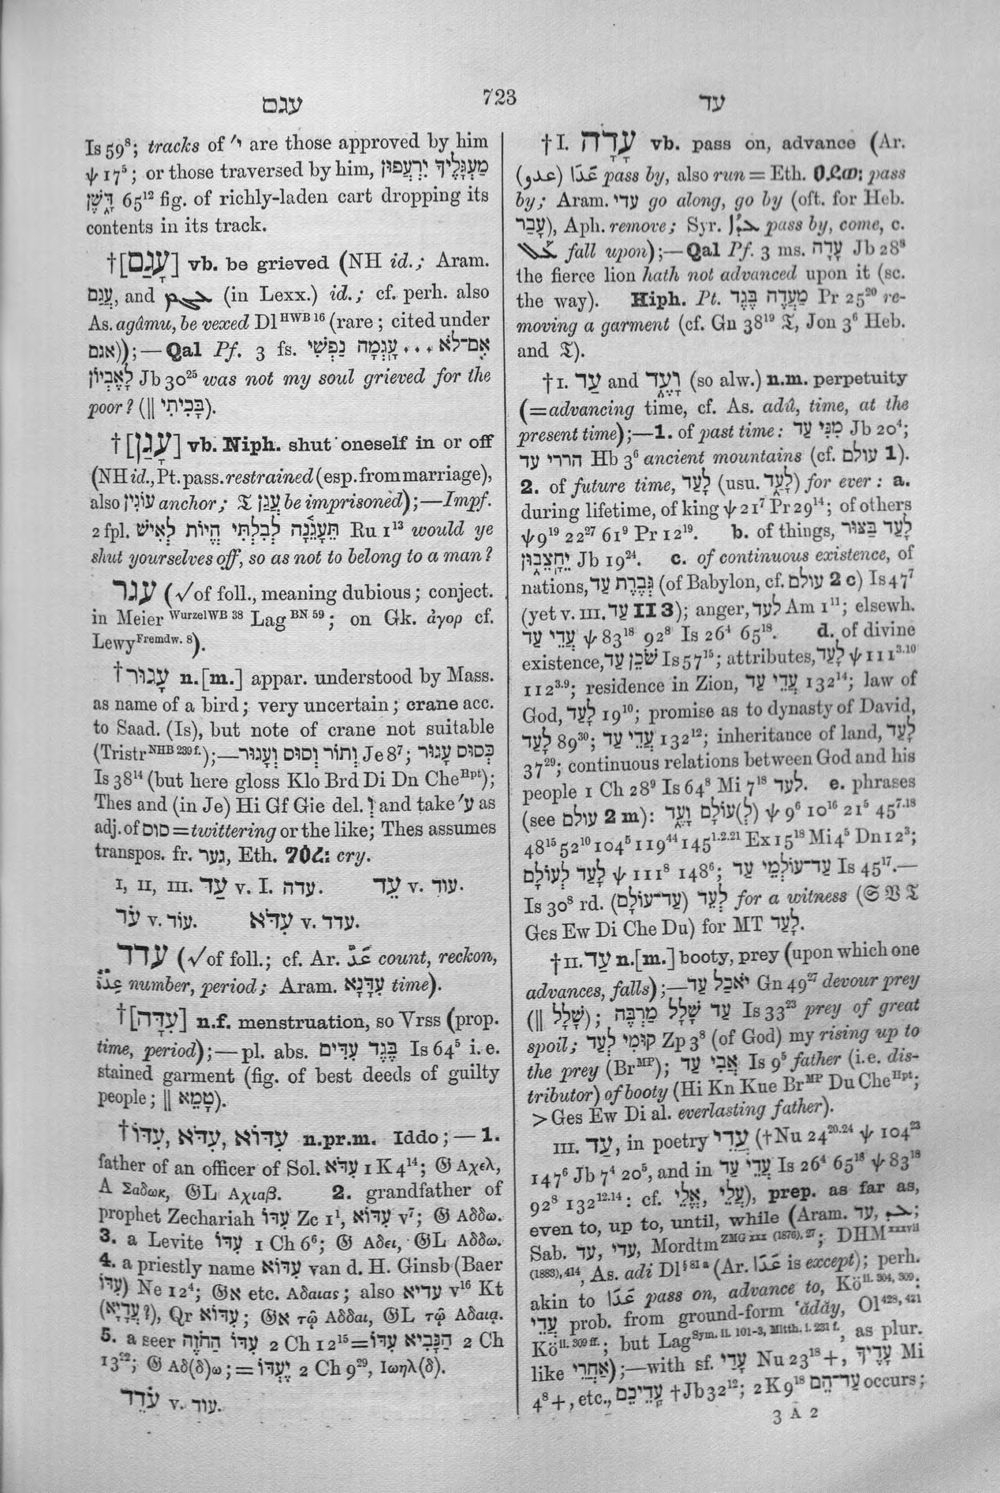 עגם
723
עד
Is 59⁸; tracks of ׳י are those approved by him
ψ 17⁵; or those traversed by him, מַעְגָּלֶיךָ יִרְעֲפוּן
דָּֽשֶׁן 65¹² fig. of richly-laden cart dropping its
contents in its track.
†[עָגַם] vb. be grieved (NH id.; Aram.
עֲגַם, and (in Lexx.) id.; cf. perh. also
As. agâmu, be vexed Dl HWB 16 (rare; cited under
אגם));—Qal Pf. 3 fs. אִם־לֹא . . . עָֽגְמָה נַפְשִׁי
לָאֶבְיוֹן Jb 30²⁵ was not my soul grieved for the
poor? (|| בָּכִיתִי).
†[עָגַן] vb. Niph. shut oneself in or off
(NH id., Pt. pass. restrained (esp. from marriage),
also עוֹגִין anchor; 𝔗 עֲגַן be imprisoned);—Impf.
2 fpl. תֵּעָגֵ֫נָה לְבִלְתִּי הֱיוֹת לְאִישׁ Ru 1¹³ would ye
shut yourselves off, so as not to belong to a man?
עגר (√of foll., meaning dubious; conject.
in Meier WurzelWB 38 Lag BN 59; on Gk. ἀγορ cf.
Lewy Fremdw. 8).
†עָגוּר n.[m.] appar. understood by Mass.
as name of a bird; very uncertain; crane acc.
to Saad. (Is), but note of crane not suitable
(Tristr NHB 239 f.);—וְתוֹר וְסוּם וְעָגוּר Je 8⁷; כְּסוּס עָגוּר
Is 38¹⁴ (but here gloss Klo Brd Di Dn Che Hpt);
Thes and (in Je) Hi Gf Gie del. וְ and take ׳ע as
adj. of סוס = twittering or the like; Thes assumes
transpos. fr. גער, Eth. cry.
I, II, III. עַד v. I. עדה. עֵד v. עוד.
עֹד v. עוד. עִדֹּא v. עדד.
עדד (√of foll.; cf. Ar. عَدَّ count, reckon,
عِدَّة number, period; Aram. עִדָּנָא time).
†[עִדָּה] n.f. menstruation, so Vrss (prop.
time, period);—pl. abs. בֶּגֶד עִדִּים Is 64⁵ i.e.
stained garment (fig. of best deeds of guilty
people; || טָמֵא).
†עִדּוֹא, עִדֹּא, עִדּוֹ n.pr.m. Iddo;—1.
father of an officer of Sol. עִדֹּא 1 K 4¹⁴; 𝔊 Αχελ,
A Σαδωκ, 𝔊L Αχιαβ. 2. grandfather of
prophet Zechariah עִדּוֹ Zc 1¹, עִדּוֹא v⁷; 𝔊 Αδδω.
3. a Levite עִדּוֹ 1 Ch 6⁶; 𝔊 Αδει, 𝔊L Αδδω.
4. a priestly name עִדּוֹא van d. H. Ginsb (Baer
עִדּוֹ) Ne 12⁴; 𝔊א etc. Αδαιας; also עדיא v¹⁶ Kt
(עֲדָיָא?), Qr עִדּוֹא; 𝔊א τῷ Αδδαι, 𝔊L τῷ Αδαιᾳ.
5. a seer עִדּוֹ הַחֹזֶה 2 Ch 12¹⁵=עִדּוֹ הַנָּבִיא 2 Ch
13²²; 𝔊 Αδ(δ)ω; = יֶעְדּוֹ 2 Ch 9²⁹, Ιωηλ(δ).
עֹדֵד v. עוד.
†I. עָדָה vb. pass on, advance (Ar.
(عدو) عَدَا pass by, also run = Eth. pass
by; Aram. עדי go along, go by (oft. for Heb.
עָבַר), Aph. remove; Syr. pass by, come, c.
fall upon);—Qal Pf. 3 ms. עָדָה Jb 28⁸
the fierce lion hath not advanced upon it (sc.
the way). Hiph. Pt. מַעֲדֶה בֶּגֶד Pr 25²⁰ re-
moving a garment (cf. Gn 38¹⁹ 𝔗, Jon 3⁶ Heb.
and 𝔗).
†I. עַד and וָעֶד (so alw.) n.m. perpetuity
(=advancing time, cf. As. adû, time, at the
present time);—1. of past time: מִנִּי עַד Jb 20⁴;
הררי עד Hb 3⁶ ancient mountains (cf. עולם 1).
2. of future time, לָעַד (usu. לָעַד) for ever: a.
during lifetime, of king ψ 21⁷ Pr 29¹⁴; of others
ψ 9¹⁹ 22²⁷ 61⁹ Pr 12¹⁹. b. of things, לָעַד בַּצּוּר
יֵחָצְבוּן Jb 19²⁴. c. of continuous existence, of
nations, גְּבֶרֶת עַד (of Babylon, cf. עולם 2 c) Is 47⁷
(yet v. III. עַד II 3); anger, לעד Am 1¹¹; elsewh.
עֲדֵי עַד ψ 83¹⁸ 92⁸ Is 26⁴ 65¹⁸. d. of divine
existence, שֹׁכֵן עַד Is 57¹⁵; attributes, לָעַד ψ 111³·¹⁰
112³·⁹; residence in Zion, עֲדֵי עַד 132¹⁴; law of
God, לָעַד 19¹⁰; promise as to dynasty of David,
לָעַד 89³⁰; עֲדֵי עַד 132¹²; inheritance of land, לָעַד
37²⁹; continuous relations between God and his
people 1 Ch 28⁹ Is 64⁸ Mi 7¹⁸ לעד. e. phrases
(see עולם 2 m): (לְ)עוֹלָם וָעֶד ψ 9⁶ 10¹⁶ 21⁵ 45⁷·¹⁸
48¹⁵ 52¹⁰ 104⁵ 119⁴⁴ 145¹·²·²¹ Ex 15¹⁸ Mi 4⁵ Dn 12³;
לָעַד לְעוֹלָם ψ 111⁸ 148⁶; עַד־עוֹלְמֵי עַד Is 45¹⁷.—
Is 30⁸ rd. לְעֵד (עַד־עוֹלָם) for a witness (𝔖 𝔙 𝔗
Ges Ew Di Che Du) for MT לָעַד.
†II. עַד n.[m.] booty, prey (upon which one
advances, falls);—יֹאכַל עַד Gn 49²⁷ devour prey
(|| שָׁלָל); עַד שָׁלָל מַרְבֶּה Is 33²³ prey of great
spoil; קוּמִי לְעַד Zp 3⁸ (of God) my rising up to
the prey (Br MP); אֲבִי עַד Is 9⁵ father (i.e. dis-
tributor) of booty (Hi Kn Kue Br MP Du Che Hpt;
> Ges Ew Di al. everlasting father).
III. עַד, in poetry עֲדֵי († Nu 24²⁰·²⁴ ψ 104²³
147⁶ Jb 7⁴ 20⁵, and in עֲדֵי עַד Is 26⁴ 65¹⁸ ψ 83¹⁸
92⁸ 132¹²·¹⁴: cf. אֱלֵי, עֲלֵי), prep. as far as,
even to, up to, until, while (Aram. עַד,
Sab. עד, עדי, Mordtm ZMG xxx (1876), 27; DHM xxxvii
(1883), 414, As. adi Dl § 81 a (Ar. عَدَا is except); perh.
akin to عَدَا pass on, advance to, Kö II. 304, 309:
עֲדֵי prob. from ground-form ʿădăy, Ol 428, 421
Kö II. 309 ff.; but Lag Sym. II. 101-3, Mitth. I. 231 f., as plur.
like אַחֲרֵי);—with sf. עָדַי Nu 23¹⁸+, עָדֶיךָ Mi
4⁸+, etc., עָֽדֵיכֶם †Jb 32¹²; 2 K 9¹⁸ עַד־הֵם occurs;
3 A 2